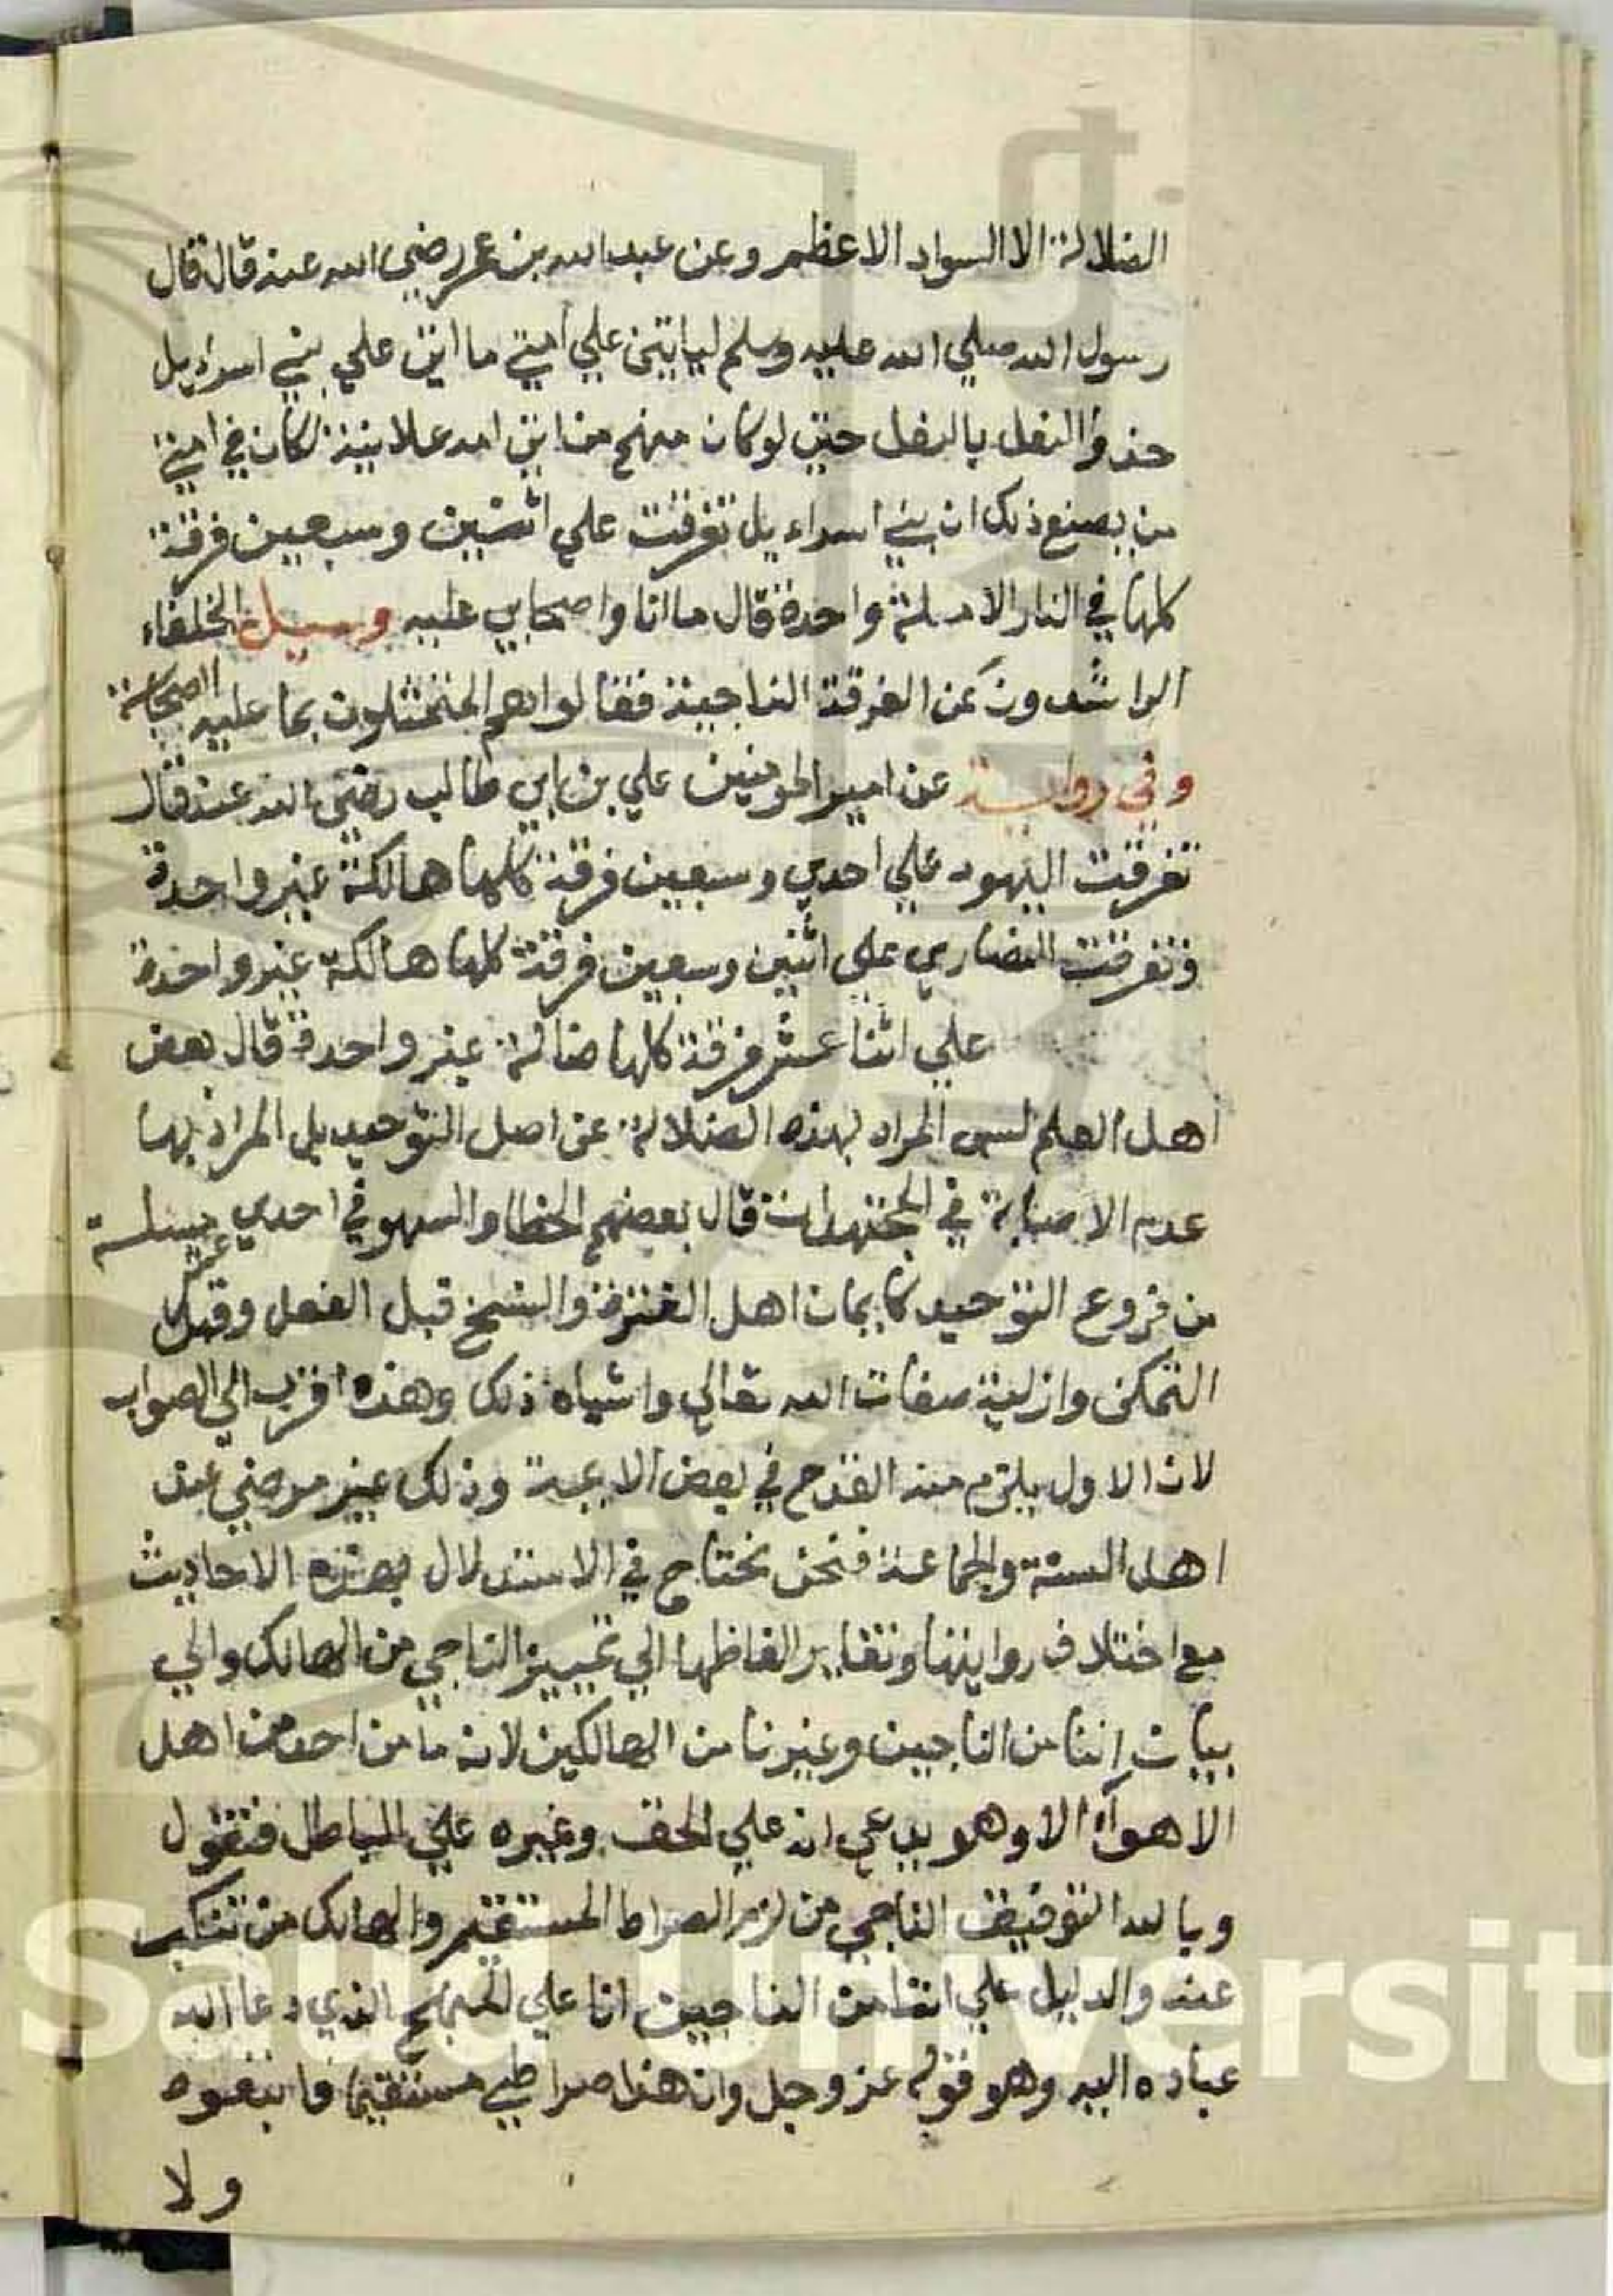 الضلالة الا السواد الاعظم وعن عبد الله بن عمر رضي الله عنه قال قال
رسول الله صلي الله عليه وسلم لياتين علي امتي ما اتي علي بني اسراءيل
حذو النعل بالنعل حتي لو كان منهم من اتي امه علانية لكان في امتي
من يصنع ذلك ان بني اسراءيل تفرقت علي اثنين وسبعين فرقة
كلها في النار الا ملة واحدة قال ما انا واصحابي عليه وسيل الخلفاء
الراشدون عن الفرقة الناجية فقالوا هم المتمثلون بما عليه الصحابة
وفي رواية عن امير المومنين علي بن ابي طالب رضي الله عنه قال
تفرقت اليهود علي احدي وسبعين فرقة كلها هالكة غير واحدة
وتفرقت النصاري علي اثنين وسبعين فرقة كلها هالكة غير واحدة
علي اثنا عشر فرقة كلها ضالة غير واحدة قال بعض
اهل العلم ليس المراد بهذه الضلالة عن اصل التوحيد بل المراد بها
عدم الاصابة في المجتهدات قال بعضهم الخطا والسهو في احدي عشر مسلة
من فروع التوحيد كايمان اهل الفترة والنسخ قبل الفعل وقبل
التمكن وازلية صفات الله تعالي واشباه ذلك وهذه اقرب الي الصواب
لان الاول يلزم منه القدح في بعض الايمة وذلك غير مرضي عند
اهل السنة والجماعة فنحن نحتاج في الاستدلال بهذه الاحاديث
مع اختلاف روايتها وتغاير الفاظها الي تمييز الناجي من الهالك والي
بيان اننا من الناجين وغيرنا من الهالكين لانه ما من احد من اهل
الاهوآء الا وهو يدعي انه علي الحق وغيره علي الباطل فنقول
وبالله التوفيق الناجي من لزم الصراط المستقيم والهالك من تنكب
عنه والدليل علي اننا من الناجين انا علي المنهج الذي دعا الله
عباده اليه وهو قوله عز وجل وان هذا صراطي مستقيما فاتبعوه
ولا
Saud Universit